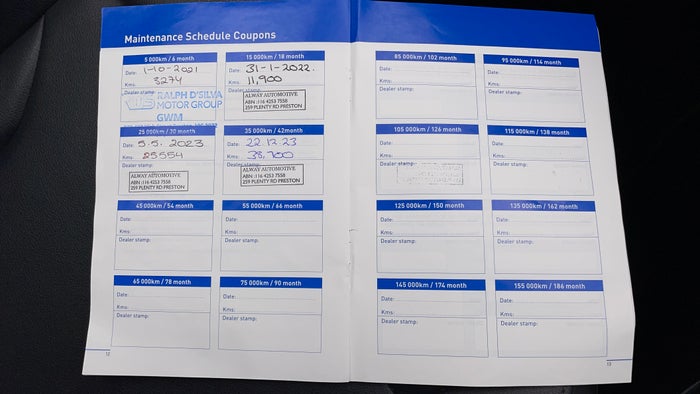 Maintenance Schedule Coupons
5 000km / 6 month
Date: 1-10-2021
Kms: 3274
Dealer stamp:
RALPH D'SILVA
MOTOR GROUP
GWM
15 000km / 18 month
Date: 31-1-2022.
Kms: 11,900
Dealer stamp:
ALWAY AUTOMOTIVE
ABN :116 4253 7558
259 PLENTY RD PRESTON
25 000km / 30 month
Date: 5.5.2023
Kms: 25554
Dealer stamp:
ALWAY AUTOMOTIVE
ABN :116 4253 7558
259 PLENTY RD PRESTON
35 000km / 42month
Date: 22.12.23
Kms: 38,700
Dealer stamp:
ALWAY AUTOMOTIVE
ABN :116 4253 7558
259 PLENTY RD PRESTON
45 000km / 54 month
Date:
Kms:
Dealer stamp:
55 000km / 66 month
Date:
Kms:
Dealer stamp:
65 000km / 78 month
Date:
Kms:
Dealer stamp:
75 000km / 90 month
Date:
Kms:
Dealer stamp:
12
85 000km / 102 month
Date:
Kms:
Dealer stamp:
95 000km / 114 month
Date:
Kms:
Dealer stamp:
105 000km / 126 month
Date:
Kms:
Dealer stamp:
115 000km / 138 month
Date:
Kms:
Dealer stamp:
125 000km / 150 month
Date:
Kms:
Dealer stamp:
135 000km / 162 month
Date:
Kms:
Dealer stamp:
145 000km / 174 month
Date:
Kms:
Dealer stamp:
155 000km / 186 month
Date:
Kms:
Dealer stamp:
13